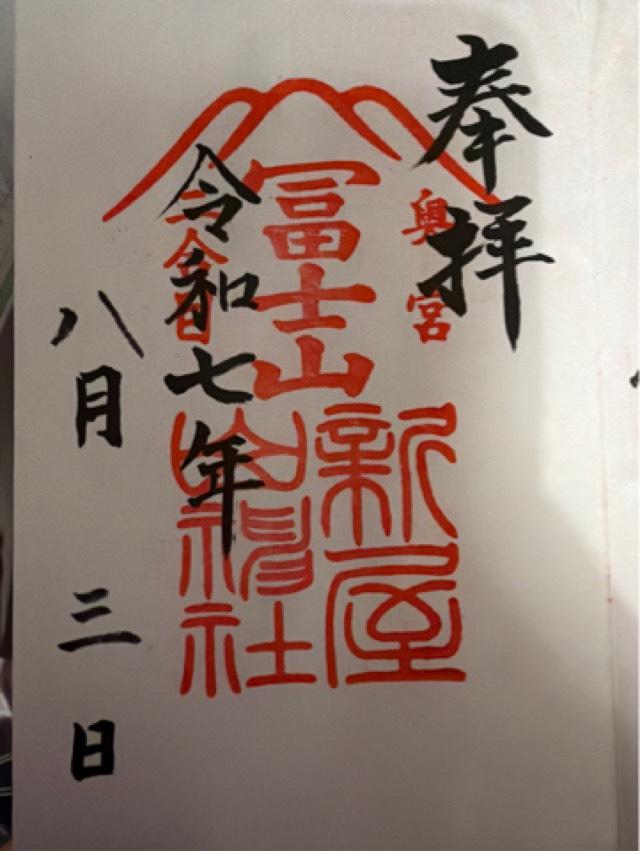 奉拝
奥宮
冨士山
新屋
山神社
二合目
令和七年
八月三日